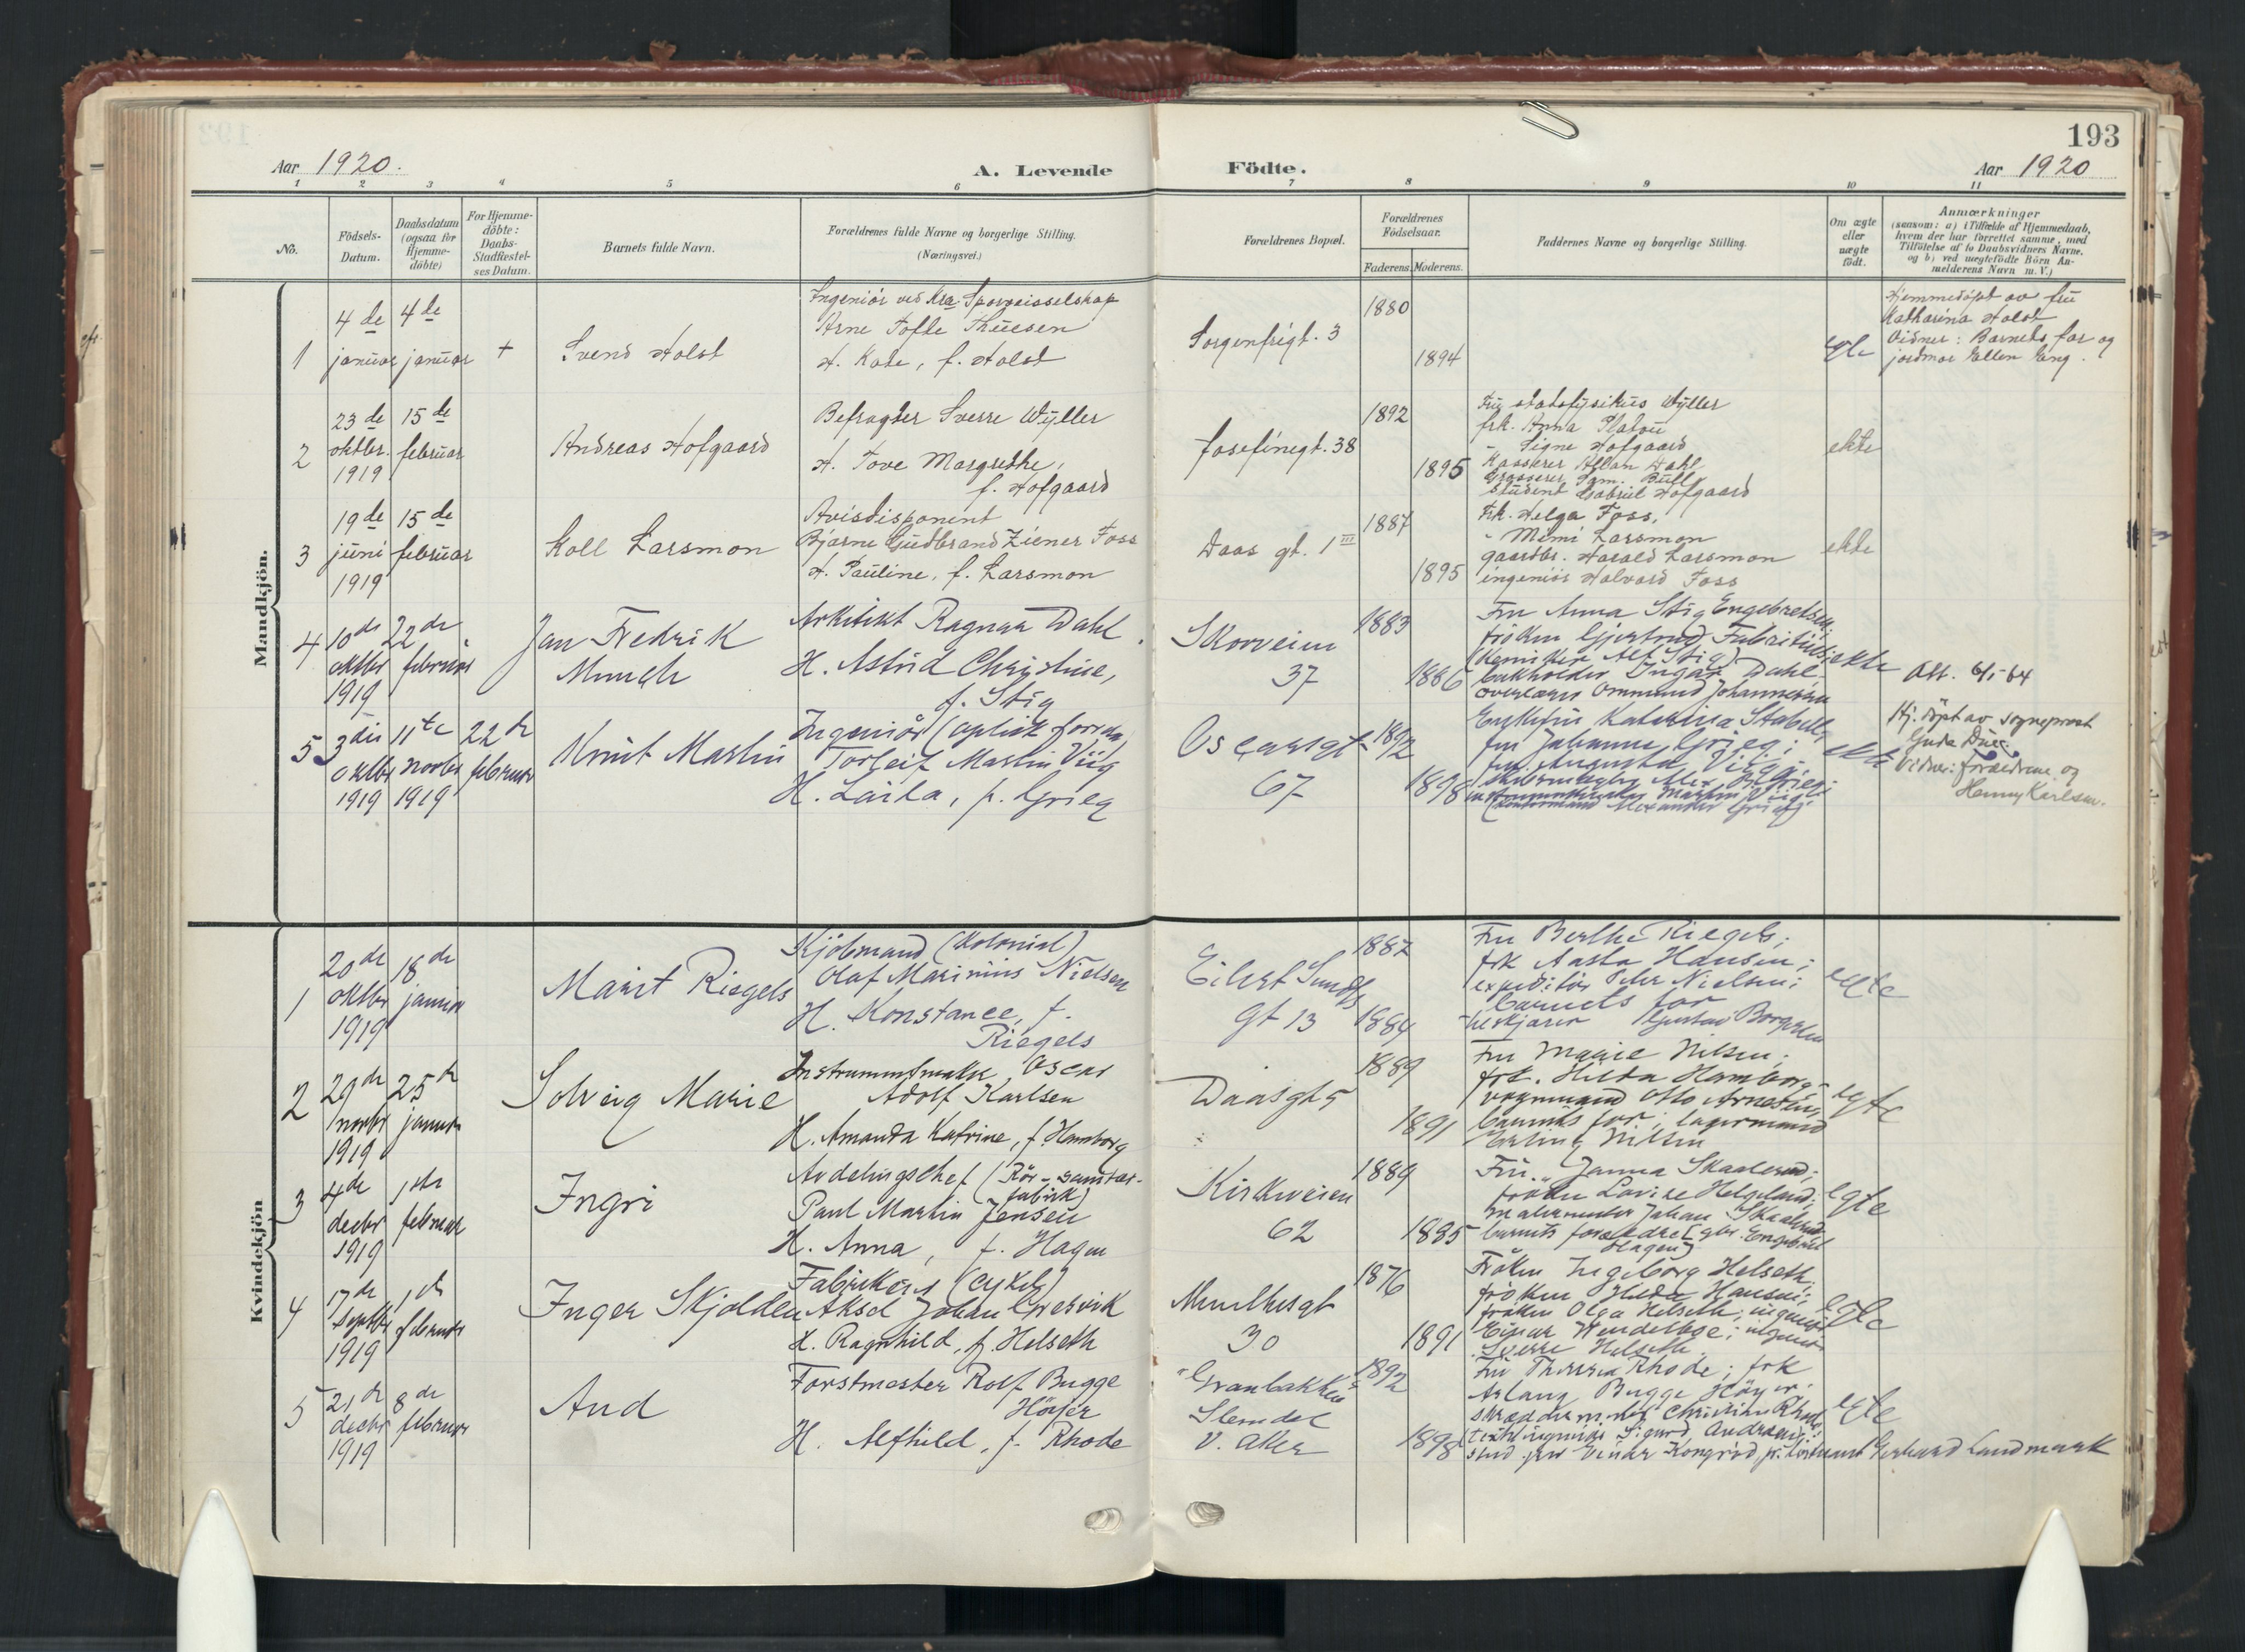 193
Aar 1920.
A. Levende
Födte.
Aar 1920
1 2 3 4 5 6 7 8 9 10 11
No.
Födsels-
Datum.
Daabsdatum
(ogsaa for
Hjemme-
döbte)
For Hjemme-
döbte:
Daabs-
Stadfestel-
ses Datum.
Barnets fulde Navn.
Forældrenes fulde Navne og borgerlige Stilling.
(Næringsvei.)
Forældrenes Bopæl.
Forældrenes
Födselsaar.
Faderens. Moderens.
Faddernes Navne og borgerlige Stilling.
Om ægte
eller
uægte
födt.
Anmærkninger
(saasom: a) i Tilfælde af Hjemmedaab,
hvem der har forrettet samme, med
Tilföielse af to Daabsvidners Navne,
og b) ved uægtefödte Börn An-
melderens Navn m. V.)
Mandkjön.
1
4de januar
4de januar
+
Svend Holst
Ingeniør ved Kra. Sporveisselskap
Arne Tofte Thuesen
H. Kate, f. Holst
Sorgenfrigt. 3
1880
1894
egte
Hjemmedøpt av fru
Katharina Holst
Vidner: Barnets far og
jordmor Ellen Eng.
2
23de
oktbr.
1919
15de
februar
Andreas Hofgaard
Befragter Sverre Wyller
H. Tove Margrethe,
f. Hofgaard
Josefinegt. 38
1892
1895
Fru statsfysikus Wyller
frk. Anna Platou
" Signe Hofgaard
Kasserer Allan Dahl
Grosserer Sam. Bull
Student Gabriel Hofgaard
ekte
3
19de
juni
1919
15de
februar
Koll Larsmon
Avisdisponent
Bjarne Gudbrand Ziener Foss
H. Pauline, f. Larsmon
Daas gt. 1 III
1887
1895
Frk. Helga Foss,
" Mimi Larsmon
gaardbr. Harald Larsmon
ingeniør Halvard Foss
ekte
4
10de
oktbr
1919
22de
februar
Jan Fredrik
Munch
Arkitekt Ragnar Dahl
H. Astrid Christine,
f. Stig
Skovveien
37
1883
1886
Fru Anna Stig Engebretsen;
frøken Gjertrud Fabritius;
(Kemiker Alf Stig)
bokholder Ingar Dahl
overlærer Ommund Johannessen
ekte
Att. 6/1-64
5
3die
oktbr
1919
11te
novbr
1919
22de
februar
Knut Martin
Ingeniør (optisk forretn.)
Torleif Martin Viig
H. Laila, f. Grieg
Oscarsgt.
67
1892
1898
Enkefru Katerina Stabell;
fru Johanne Grieg;
fru Augusta Viig;
skibsmægler Alex. Grieg;
instrumentmaker Martin Viig
ekte
Hj. døpt av sogneprest
Vidner: Forældrene og
Henny Karlsen.
Kvindekjön
1
20de
oktbr
1919
18de
januar
Marit Riegels
Kjøbmand (Kolonial)
Olaf Marinius Nielsen
H. Konstance, f.
Riegels
Eilert Sundts
gt 13
1887
1884
Fru Berthe Riegels;
frk Aasta Hansen;
expeditør Peter Nielsen;
barnets far
Gustav Borgersen
egte
2
29de
novbr
1919
25de
januar
Solveig Marie
Instrumentmaker Oscar
Adolf Karlsen
H. Amanda Katrine, f. Hamborg
Daasgt 5
1889
1891
Fru Marie Nilsen;
frk. Hilda Hamborg;
vognmand Otto Arnesen;
barnets far; lagermand
Erling Nilsen
egte
3
4de
decbr
1919
1ste
februar
Ingri
Avdelingschef (Rør- sanitær-
fabrik)
Paul Martin Jensen
H. Anna, f. Hagen
Kirkeveien
62
1889
1895
Fru Janna Skaalerud;
frøken Lovise Helgeland;
malermester Johan Skaalerud
barnets forældre (gbr. Engebret
Hagen)
egte
4
17de
septbr
1919
1ste
februar
Inger Skjolden
Fabrikeier (Cykel)
Aksel Johan Gresvik
H. Ragnhild, f. Helseth
Munthesgt
30
1876
1891
Frøken Ingeborg Helseth;
frøken Hilda Hansen;
frøken Olga Helseth; ingeniør
Einar Wendelboe; ingeniør
Sverre Helseth.
egte
5
21de
decbr
1919
8de
februar
Aud
Forstmester Rolf Bugge
Høyer
H. Alfhild, f. Rhode
"Granbakken"
Slemdal
V. Aker
1892
1898
Fru Theresa Rhode; frk
Aslaug Bugge Høyer;
skræddermester Christian Rhode;
Sigurd Andreassen;
stud. jur Einar Kongrød, pr. løitnant Gerhard Landmark
egte